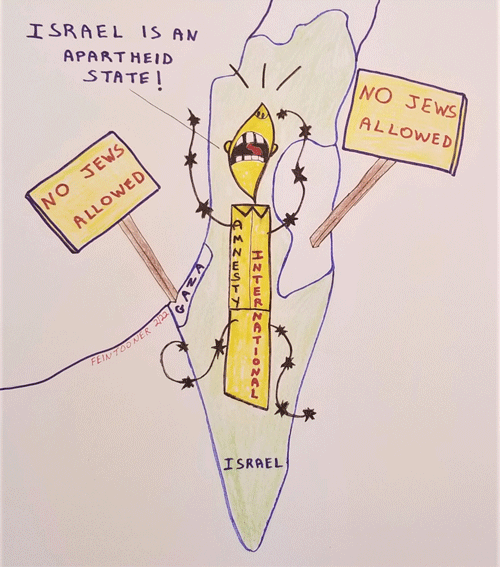 ISRAEL IS AN
APARTHEID
STATE!
NO JEWS
ALLOWED
NO JEWS
ALLOWED
AMNESTY
INTERNATIONAL
GAZA
FEINTOONER 2/22
ISRAEL